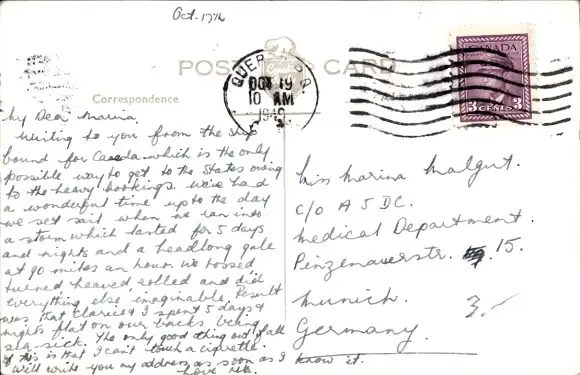 Oct. 17th
POST CARD
Correspondence
QUEBEC P.Q.
OCT 19
10 AM
1949
CANADA
3 CENTS 3
My Dear Marina,
Writing to you from the ship
bound for Canada which is the only
possible way to get to the States owing
to the heavy bookings. We've had
a wonderful time up to the day
we set sail when we ran into
a storm which lasted for 5 days
and nights and a headlong gale
at 90 miles an hour. We tossed
turned, heaved rolled and did
everything else imaginable. Result
was that Clarice & I spent 5 days &
nights flat on our backs being
sea-sick. The only good thing out of all
of this is that I can't touch a cigarette.
Will write you my address as soon as I know it.
Love
Miss Marina Malgut.
c/o A J D C.
Medical Department.
Pinzenauerstr. 15.
Munich.
Germany.
3.-